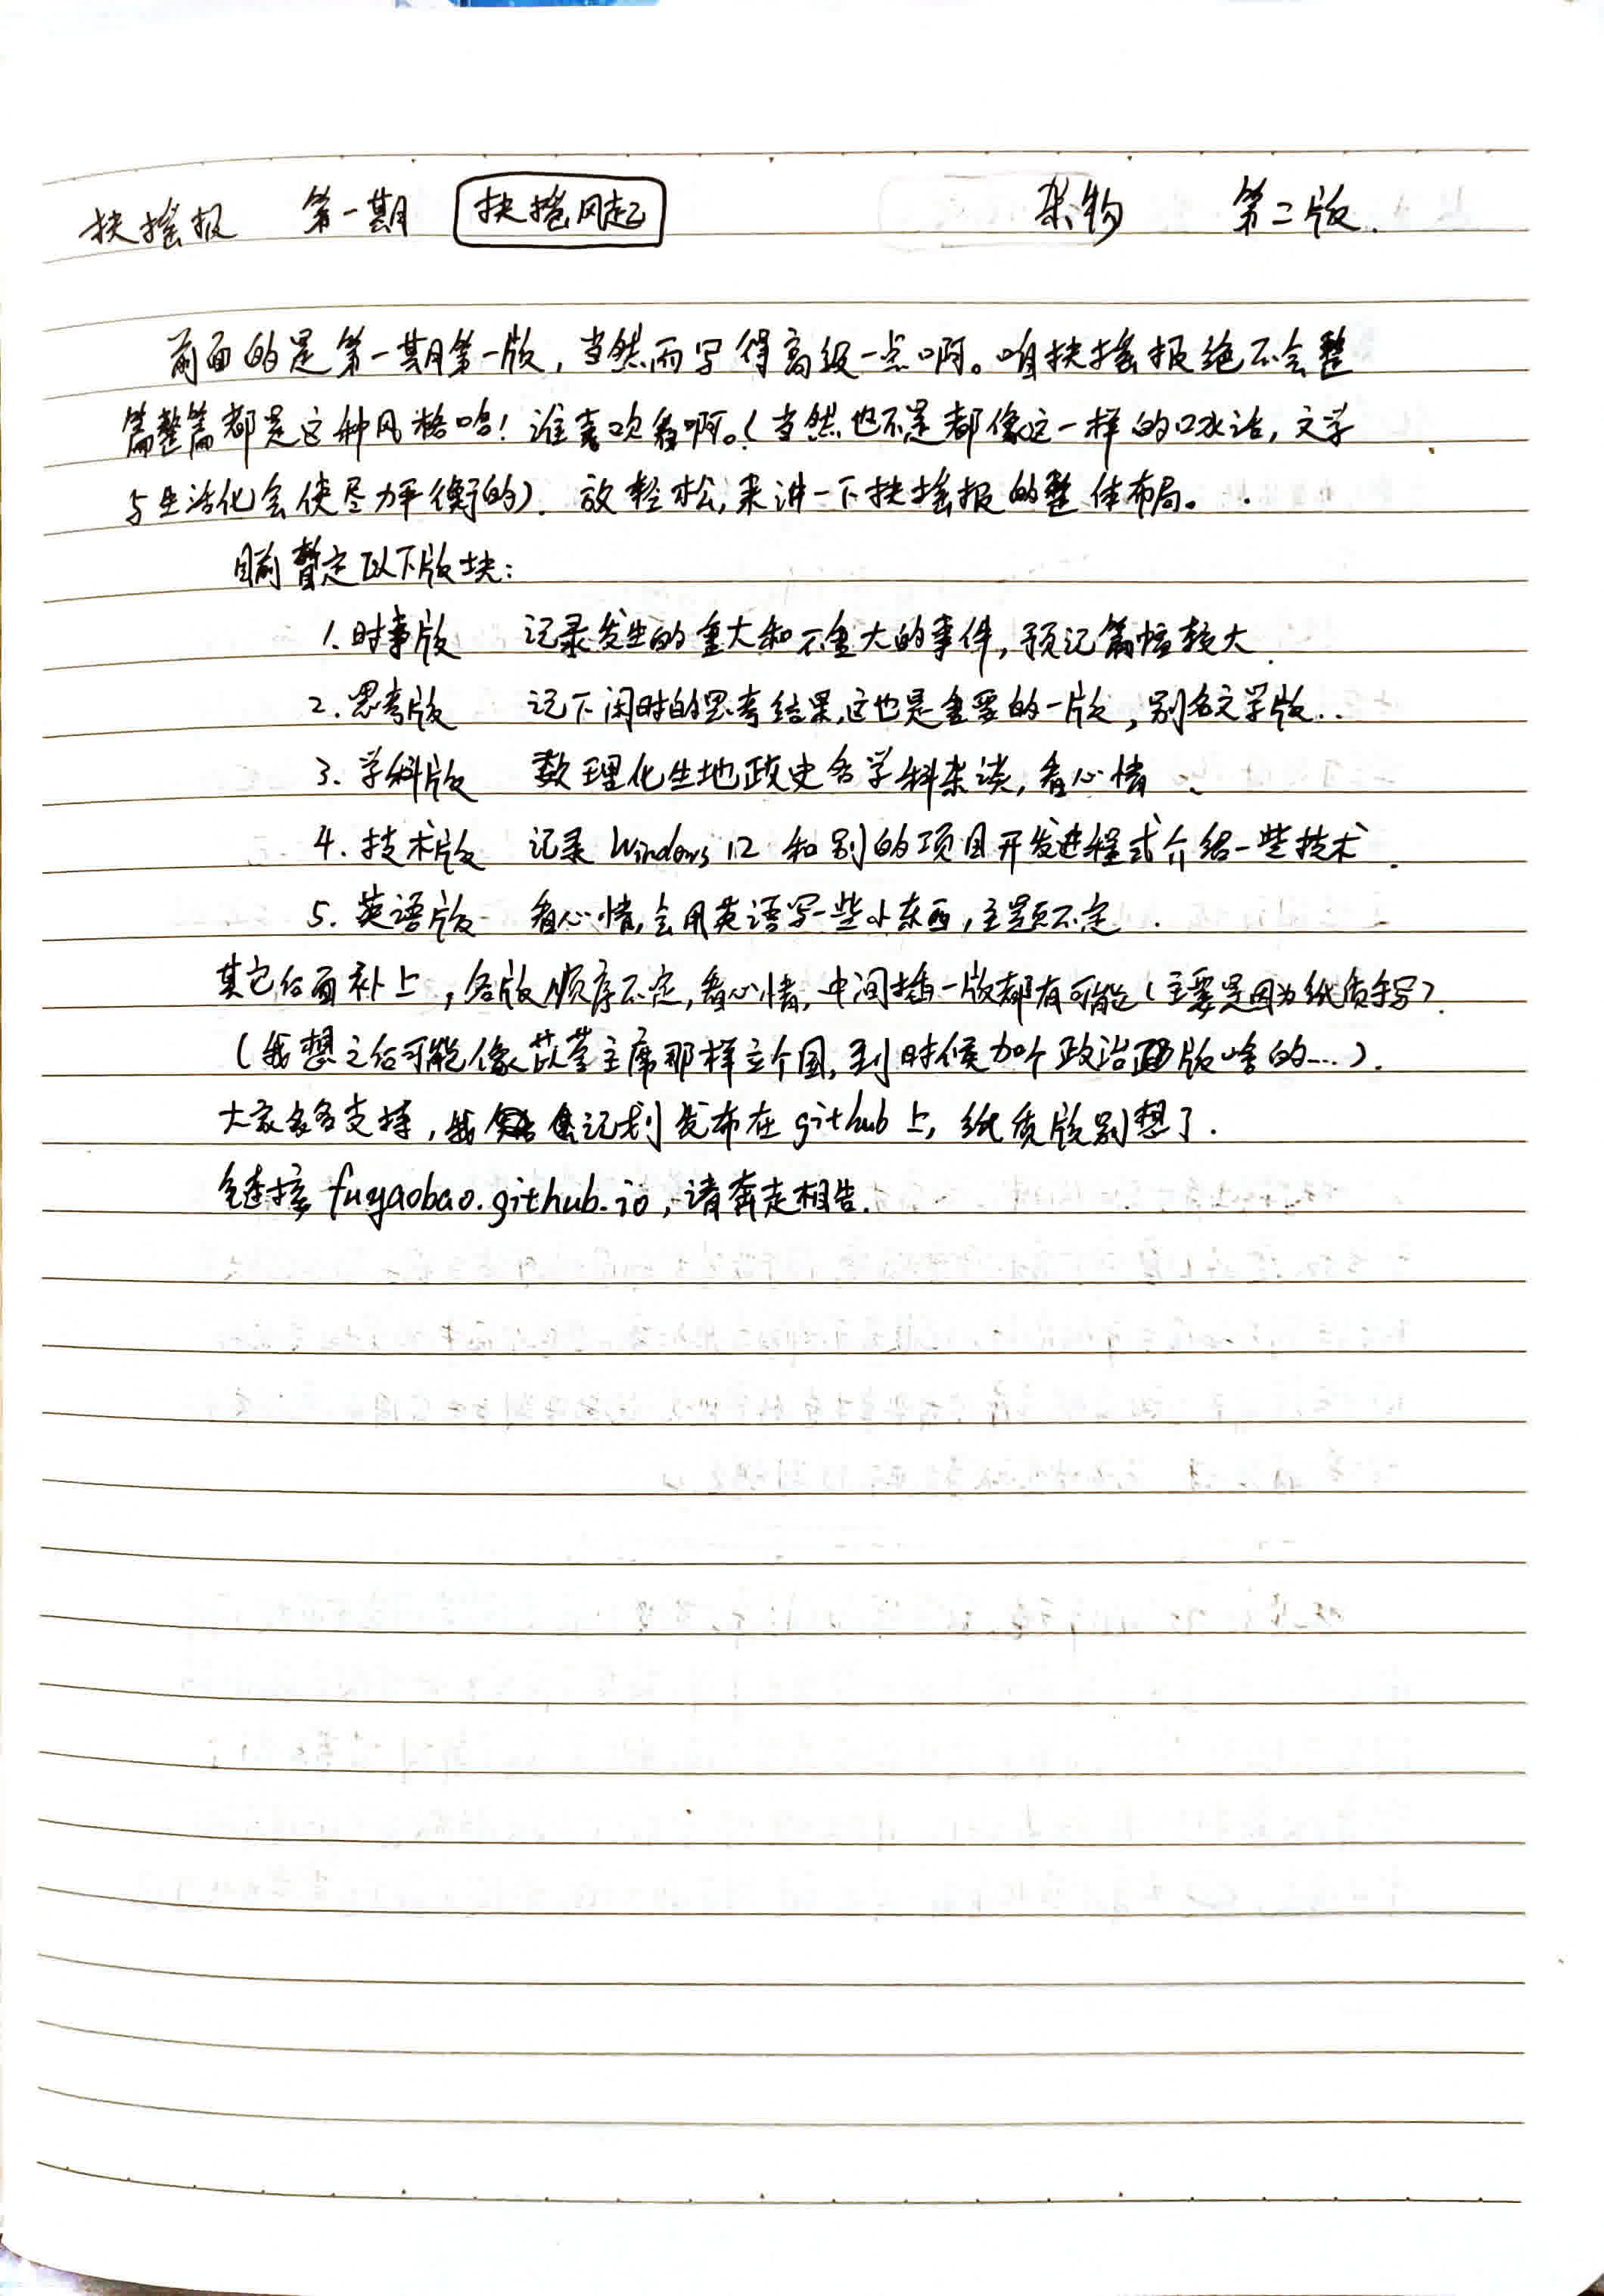 扶摇报 第一期 扶摇风起 杂物 第二版.
前面的是第一期第一版,当然而写得高级一点啊。咱扶摇报绝不会整
篇整篇都是这种风格哈!谁喜欢看啊。(当然也不是都像这一样的口水话,文学
与生活化会使尽力平衡的).放轻松,来讲一下扶摇报的整体布局。
目前暂定以下版块:
1.时事版 记录发生的重大和不重大的事件,预记篇幅较大.
2.思考版 记下闲时的思考结果,这也是重要的一版,别名文学版..
3.学科版 数理化生地政史各学科杂谈,看心情.
4.技术版 记录Windows 12 和别的项目开发进程或介绍一些技术.
5.英语版 看心情,会用英语写一些小东西,主题不定.
其它后面补上,各版顺序不定,看心情,中间插一版都有可能(主要是因为纸质手写).
(我想之后可能像主席那样立个国,到时候加个政治版啥的...).
大家多多支持,我记划发布在github上,纸质版别想了.
链接fuyaobao.github.io,请奔走相告.